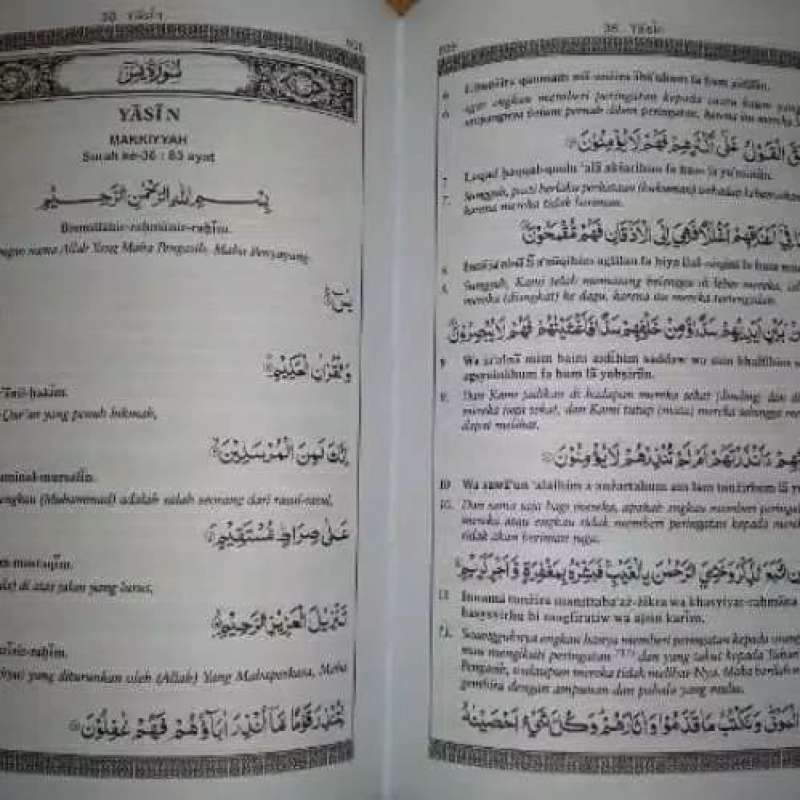 36 Yāsīn
سُورَةُ يٰسٓ
YĀSĪN
MAKKIYYAH
Surah ke-36 : 83 ayat
بِسْمِ اللّٰهِ الرَّحْمٰنِ الرَّحِيْمِ
Bismillāhir-raḥmānir-raḥīm.
nama Allah Yang Maha Pengasih, Maha Penyayang.
يٰسٓ
وَالْقُرْاٰنِ الْحَكِيْمِ
ḥakīm.
Qur'an yang penuh hikmah,
اِنَّكَ لَمِنَ الْمُرْسَلِيْنَ
laminal-mursalīn.
engkau (Muhammad) adalah salah seorang dari rasul-rasul,
عَلٰى صِرَاطٍ مُّسْتَقِيْمٍ
mustaqīm.
di atas jalan yang lurus,
تَنْزِيْلَ الْعَزِيْزِ الرَّحِيْمِ
raḥīm.
yang diturunkan oleh (Allah) Yang Mahaperkasa, Maha
لِتُنْذِرَ قَوْمًا مَّآ اُنْذِرَ اٰبَاۤؤُهُمْ فَهُمْ غٰفِلُوْنَ
36 Yāsīn
6 Litunżira qauman mā unżira ābā'uhum fa hum gāfilūn.
6. agar engkau memberi peringatan kepada suatu kaum yang
belum pernah diberi peringatan, karena itu mereka
الْقَوْلُ عَلٰٓى اَكْثَرِهِمْ فَهُمْ لَا يُؤْمِنُوْنَ
7 Laqad ḥaqqal-qaulu 'alā akṡarihim fa hum lā yu'minūn.
7. Sungguh, pasti berlaku perkataan (hukuman) terhadap kebanyakan
karena mereka tidak beriman.
فِيْٓ اَعْنَاقِهِمْ اَغْلٰلًا فَهِيَ اِلَى الْاَذْقَانِ فَهُمْ مُّقْمَحُوْنَ
8 Innā ja'alnā fī a'nāqihim aglālan fa hiya ilal-ażqāni fa hum
8. Sungguh, Kami telah memasang belenggu di leher mereka,
mereka (diangkat) ke dagu, karena itu mereka tertengadah.
بَيْنِ اَيْدِيْهِمْ سَدًّا وَّمِنْ خَلْفِهِمْ سَدًّا فَاَغْشَيْنٰهُمْ فَهُمْ لَا يُبْصِرُوْنَ
9 Wa ja'alnā mim baini aidīhim saddaw wa min khalfihim
fa hum lā yubṣirūn.
9. Dan Kami jadikan di hadapan mereka sekat (dinding) dan di
mereka juga sekat, dan Kami tutup (mata) mereka sehingga mereka
dapat melihat.
ءَاَنْذَرْتَهُمْ اَمْ لَمْ تُنْذِرْهُمْ لَا يُؤْمِنُوْنَ
10 Wa sawā'un 'alaihim a anżartahum am lam tunżirhum lā
10. Dan sama saja bagi mereka, apakah engkau memberi peringatan
mereka atau engkau tidak memberi peringatan kepada mereka
tidak akan beriman juga.
مَنِ اتَّبَعَ الذِّكْرَ وَخَشِيَ الرَّحْمٰنَ بِالْغَيْبِ فَبَشِّرْهُ بِمَغْفِرَةٍ وَّاَجْرٍ كَرِيْمٍ
11 Innamā tunżiru manittaba'aż-żikra wa khasyiyar-raḥmāna
basysyirhu bi magfiratiw wa ajrin karīm.
11. Sesungguhnya engkau hanya memberi peringatan kepada orang
mau mengikuti peringatan dan yang takut kepada Tuhan
Pengasih, walaupun mereka tidak melihat-Nya. Maka berilah
gembira dengan ampunan dan pahala yang mulia.
الْمَوْتٰى وَنَكْتُبُ مَا قَدَّمُوْا وَاٰثَارَهُمْ وَكُلَّ شَيْءٍ اَحْصَيْنٰهُ